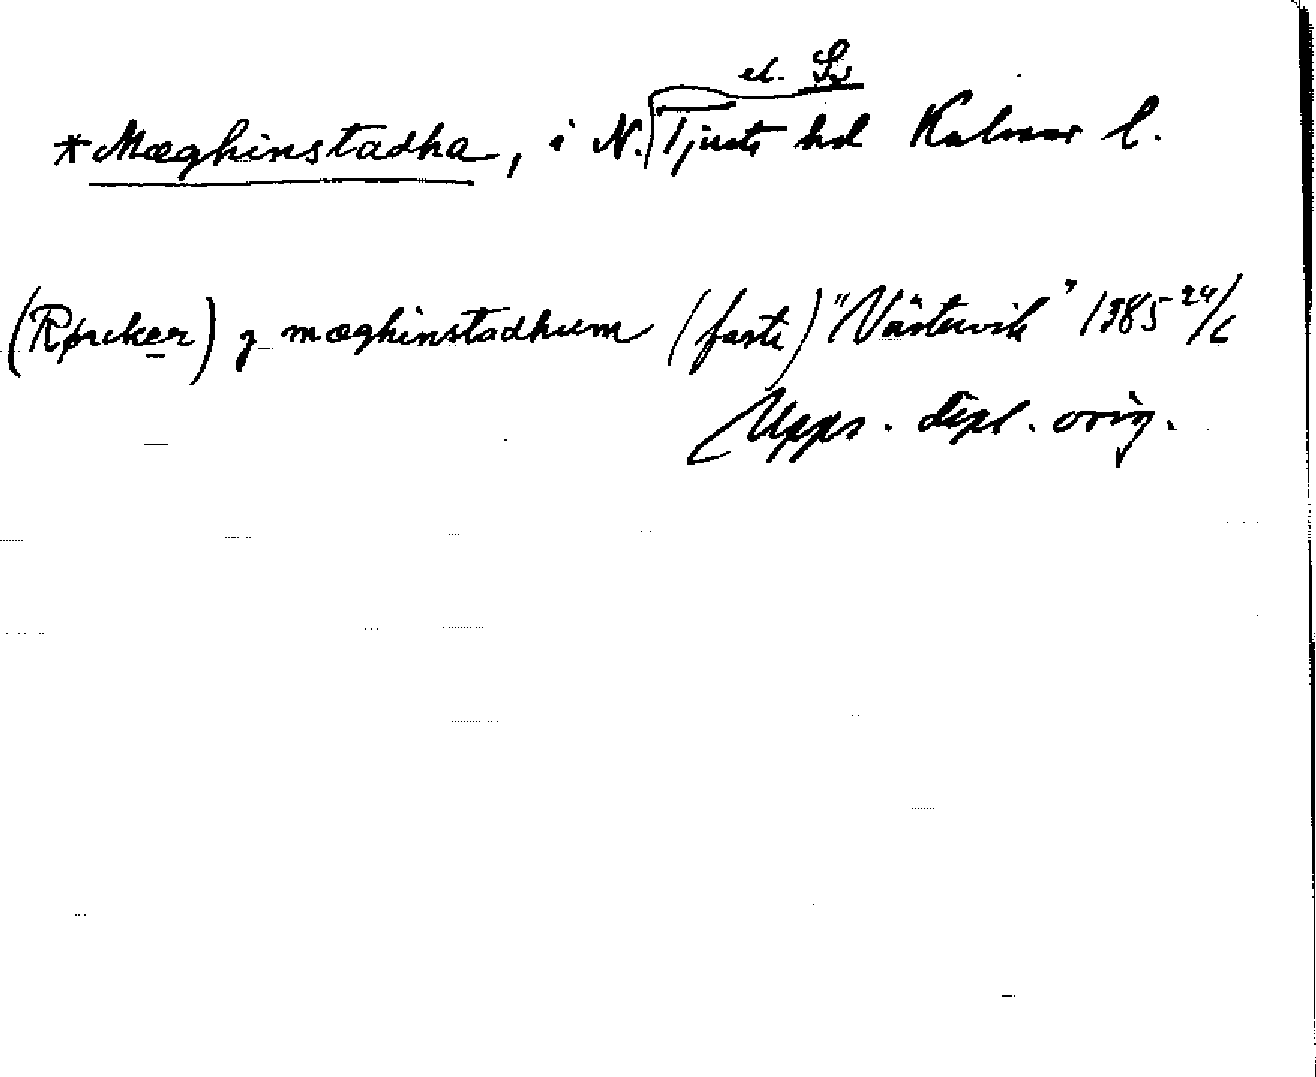 el. S.
*Mæghinstadha, i N. Tjusts hd Kalmar l.
(Rørekær) j mæghinstadhum (faste) "Västervik" 1385 24/6
Upps. dipl. orig.